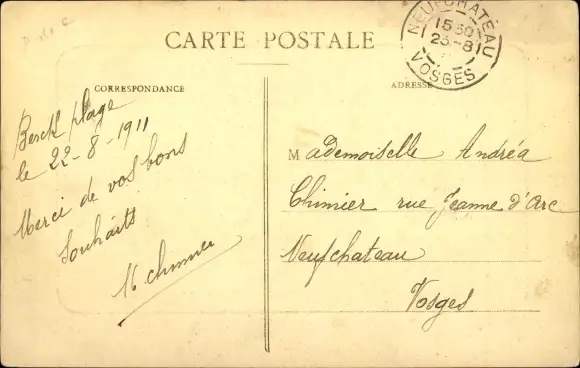 P. de C
CARTE POSTALE
NEUFCHATEAU
15 30
23-8
VOSGES
CORRESPONDANCE
Berck plage
le 22-8-1911
Merci de vos bons
Souhaits
chimier
ADRESSE
Mademoiselle Andréa
Chimier rue Jeanne d'Arc
Neufchateau
Vosges